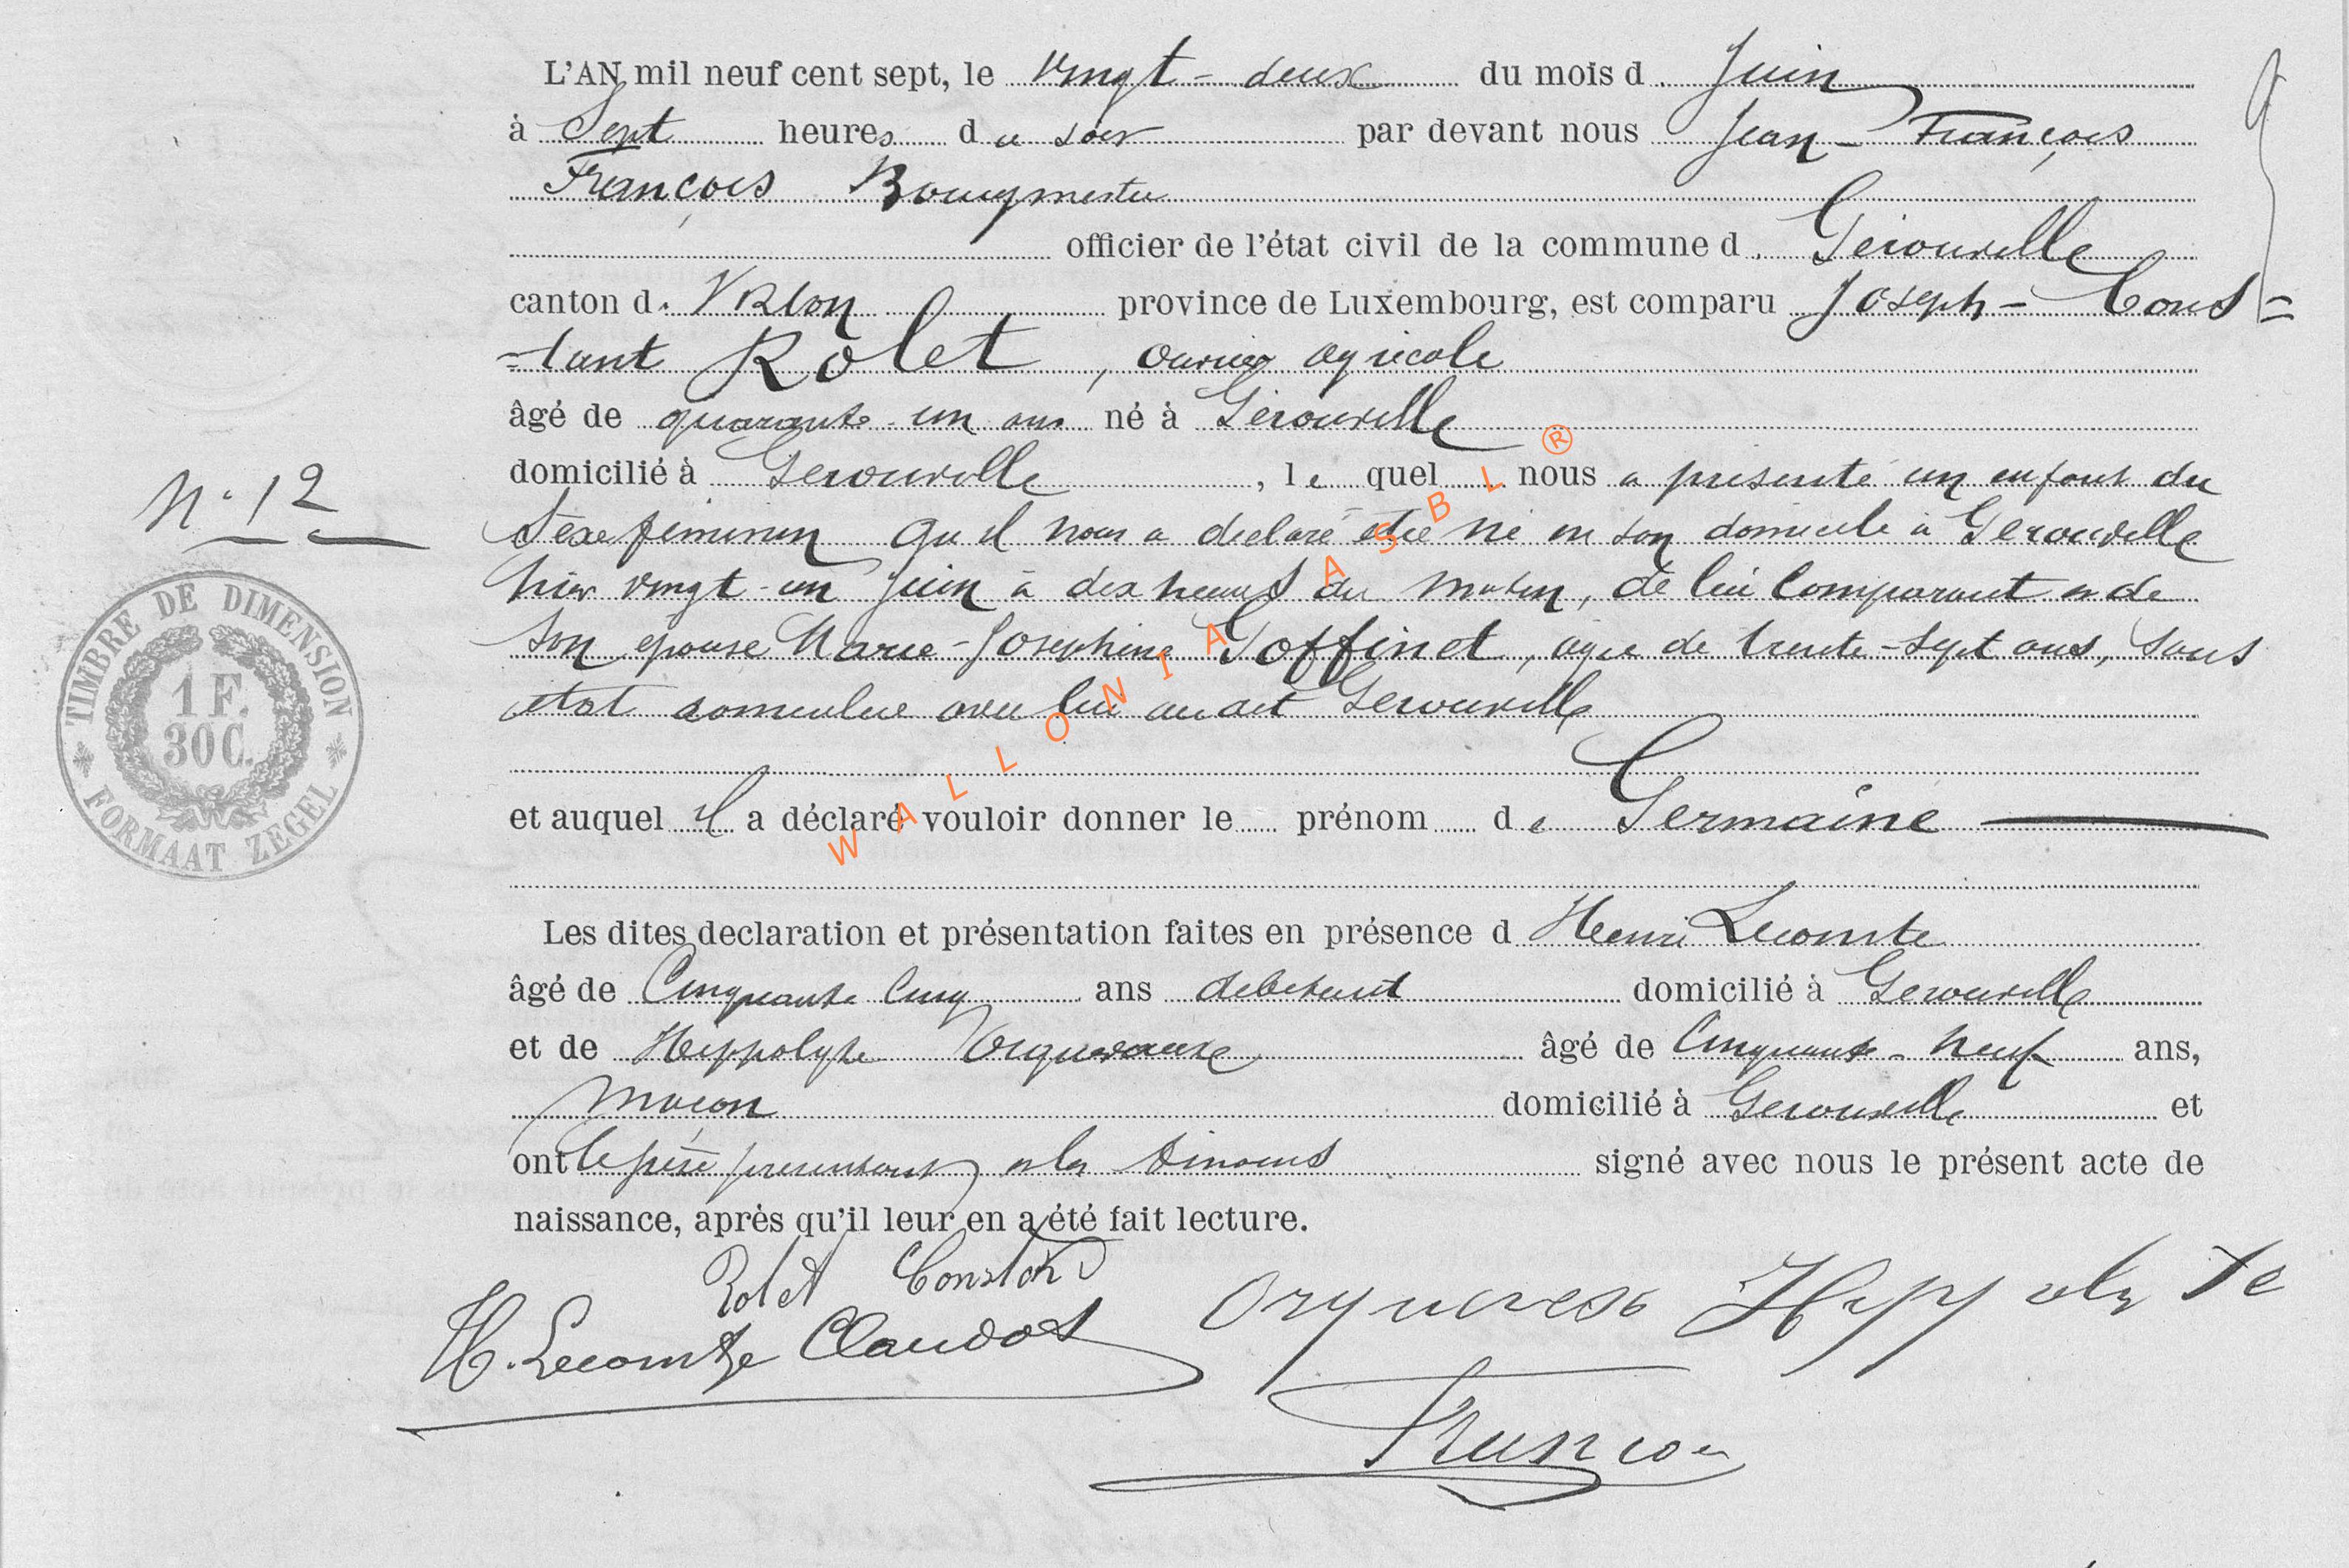 L'AN mil neuf cent sept, le vingt-deux du mois d. Juin
à Sept heures du soir par devant nous Jean-François
François Bourgmestre
officier de l'état civil de la commune d. Gérouville
canton d. Virton province de Luxembourg, est comparu Joseph-Cons=
=tant Rolet, ouvrier agricole
âgé de quarante-un ans né à Gérouville
domicilié à Gérouville, le quel nous a présenté un enfant du
Sexe féminin qu'il nous a déclaré être né en son domicile à Gérouville
hier vingt-un Juin à dix heures du matin, de lui Comparant et de
Son épouse Marie-Joséphine Goffinet, agée de trente-sept ans, sans
état domiciliée avec lui au dit Gérouville
et auquel il a déclaré vouloir donner le prénom de Germaine
Les dites declaration et présentation faites en présence d Henri Lecomte
âgé de Cinquante Cinq ans débitant domicilié à Gérouville
et de Hippolyte Orquevaux âgé de Cinquante-neuf ans,
maçon domicilié à Gérouville et
ont le père présentant et les témoins signé avec nous le présent acte de
naissance, après qu'il leur en a été fait lecture.
Rolet Constant
H. Lecomte Claudot
Orquevaux Hippolyte
François
N° 12
TIMBRE DE DIMENSION
1 F.
30 C.
FORMAAT ZEGEL
WALLONIA ASBL ®